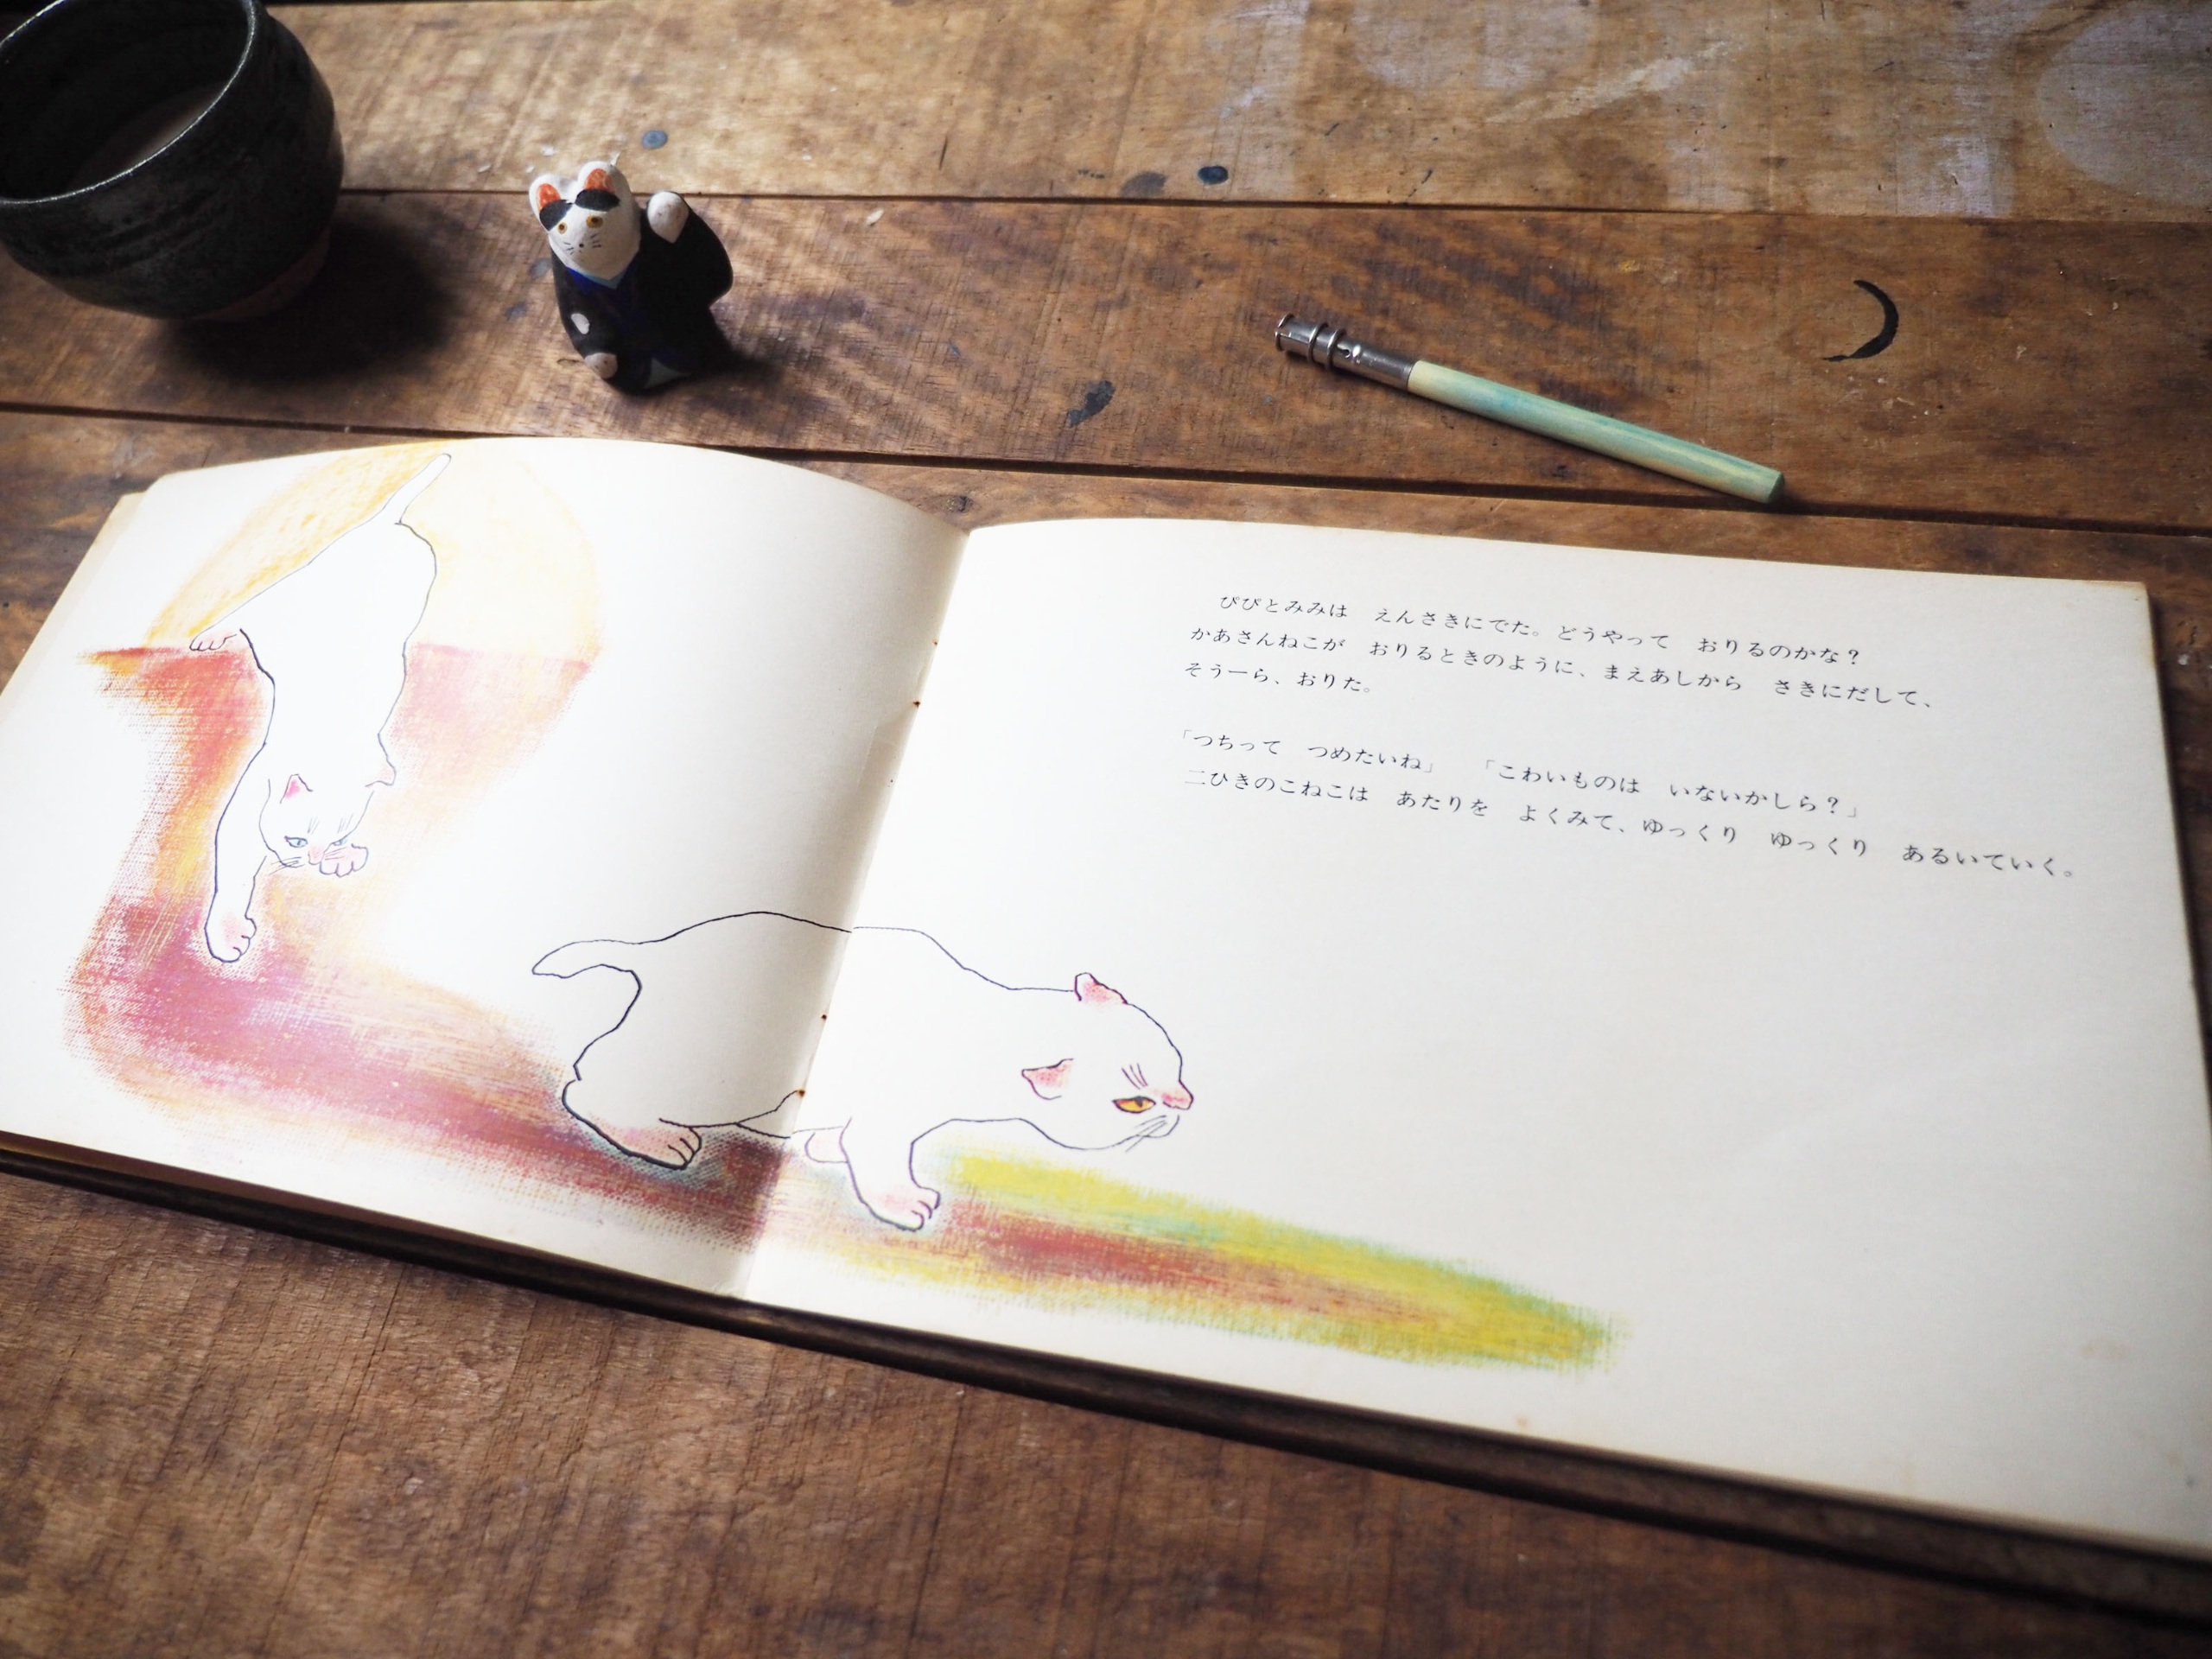 ぴぴとみみは　えんさきにでた。どうやって　おりるのかな？
かあさんねこが　おりるときのように、まえあしから　さきにだして、
そうーら、おりた。
「つちって　つめたいね」　「こわいものは　いないかしら？」
二ひきのこねこは　あたりを　よくみて、ゆっくり　ゆっくり　あるいていく。